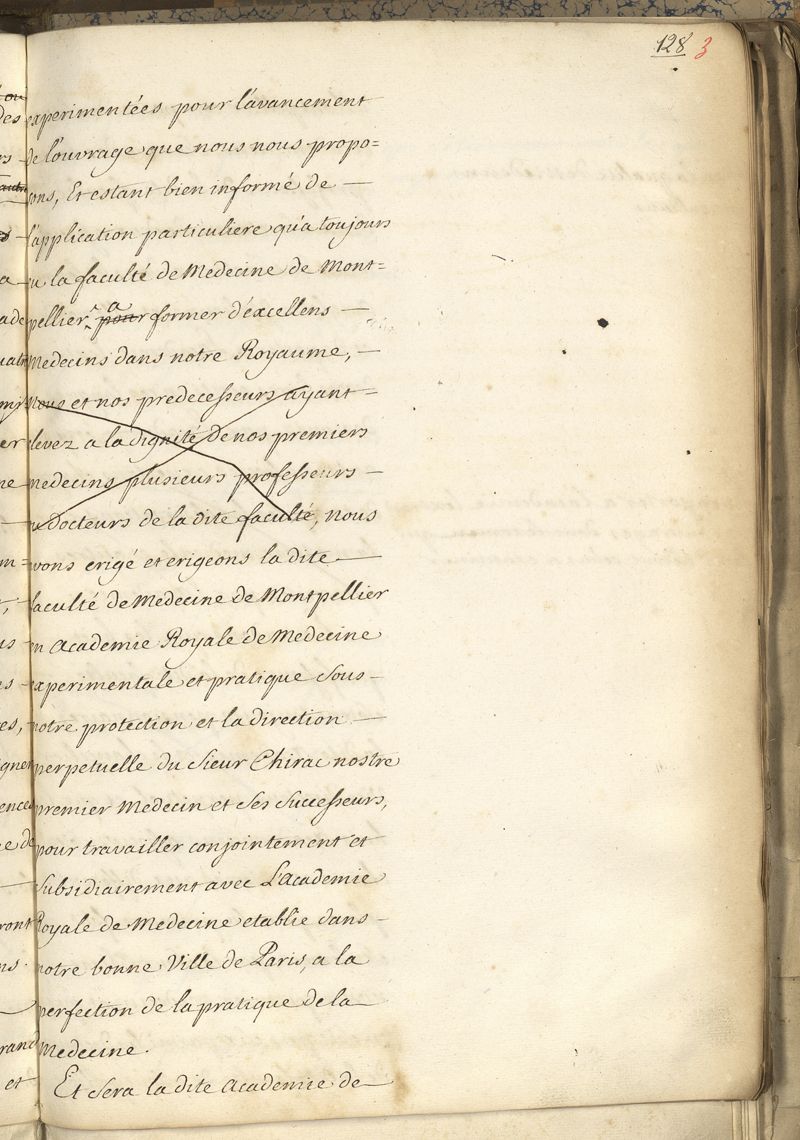 128 3
experimentées pour l'avancement
de l'ouvrage que nous nous propo=
sons, Et estant bien informé de —
l'application particuliere qu'a toujours
eu la faculté de Medecine de Mont=
pellier, pour a former d'excellens —
Medecins dans notre Royaume, —
Nous et nos predecesseurs ayant =
elevez a la dignité de nos premiers
medecins plusieurs professeurs —
ou Docteurs de la dite faculté, nous
avons erigé et erigeons la dite —
faculté de Medecine de Montpellier
en Academie Royale de Medecine
experimentale et pratique sous —
notre protection et la direction —
perpetuelle du Sieur Chirac nostre
premier Medecin et ses successeurs,
pour travailler conjointement et
subsidiairement avec L'Academie
Royale de Medecine etablie dans —
notre bonne Ville de Paris, a la
perfection de la pratique de la —
Medecine.
Et sera la dite Academie de —